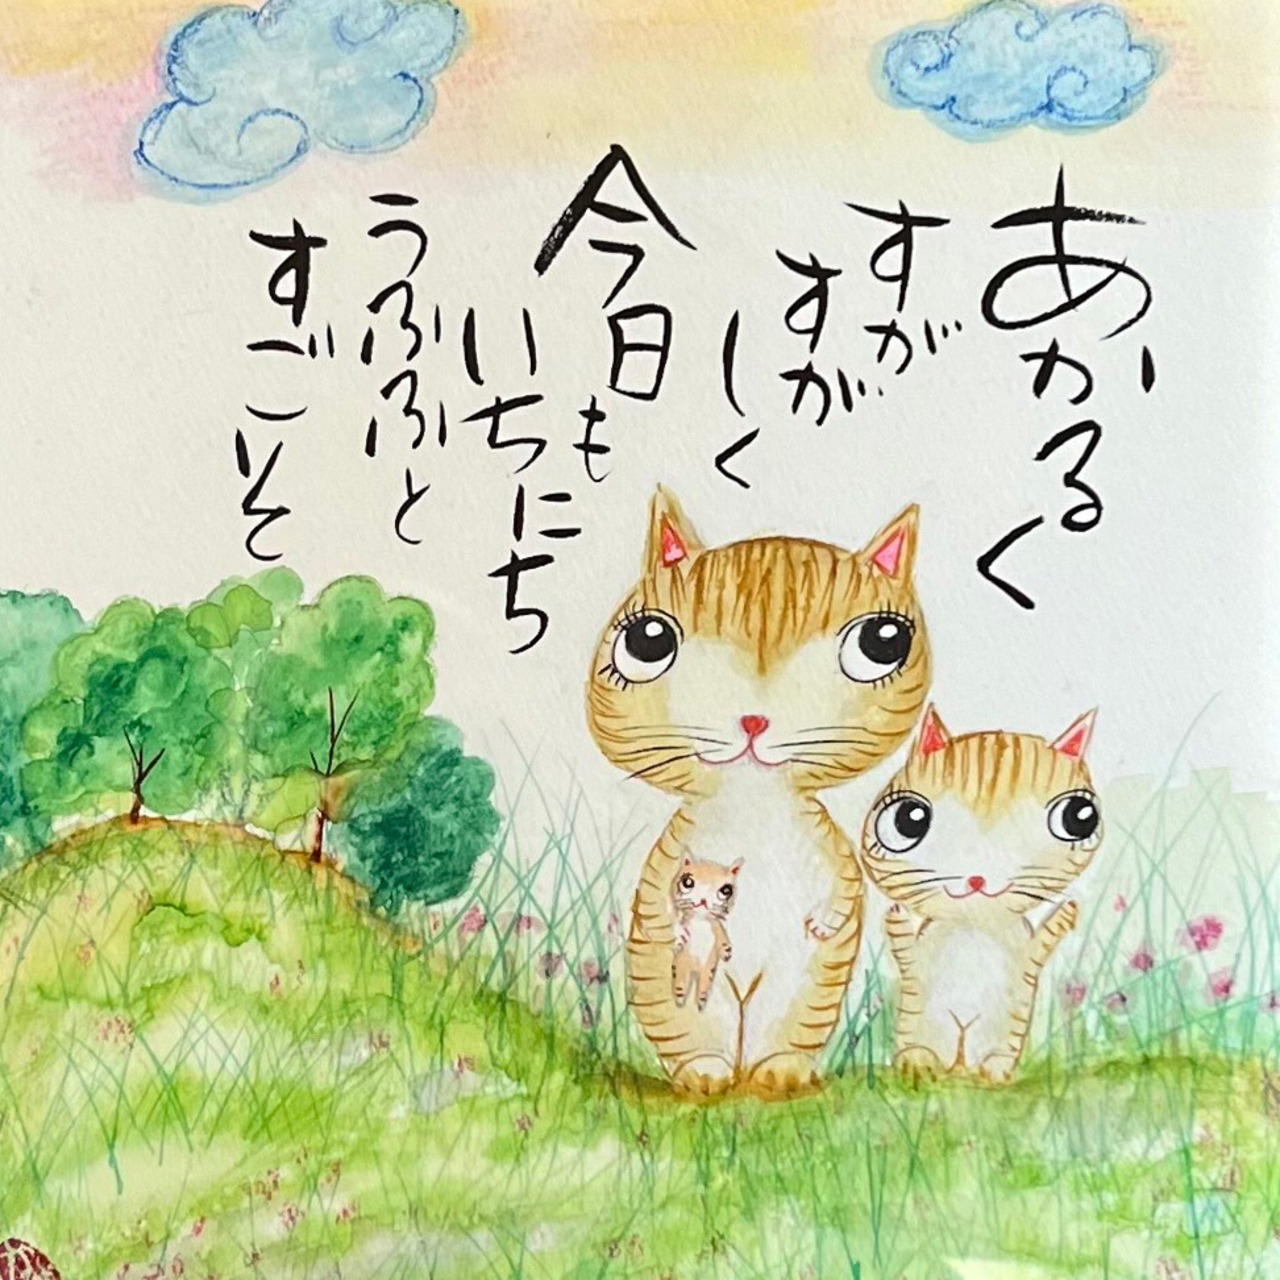 あかるく
すが
すが
しく
今日も
いちにち
うふふふと
すごそ